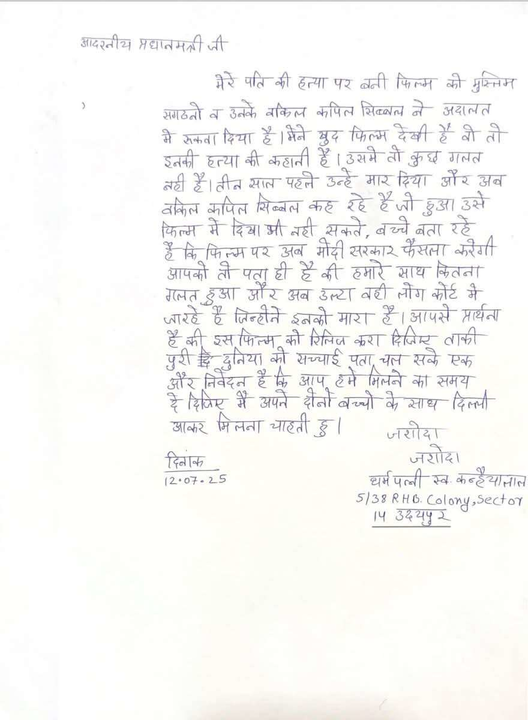 आदरनीय प्रधानमंत्री जी
मेरे पति की हत्या पर बनी फिल्म को मुस्लिम
संगठनो व उनके वकिल कपिल सिब्बल ने अदालत
मे रुकवा दिया है। मैने खुद फिल्म देखी है वो तो
इनकी हत्या की कहानी है। उसमे तो कुछ गलत
नही है। तीन साल पहले उन्हे मार दिया और अब
वकिल कपिल सिब्बल कह रहे है जो हुआ उसे
फिल्म में दिखा भी नही सकते, बच्चे बता रहे
है कि फिल्म पर अब मोदी सरकार फैसला करेगी
आपको तो पता ही है की हमारे साथ कितना
गलत हुआ और अब उल्टा वही लोग कोर्ट मे
जारहे है जिन्होने इनको मारा है। आपसे प्रार्थना
है की इस फिल्म को रिलिज करा दिजिए ताकी
पुरी दुनिया को सच्चाई पता चल सके एक
और निवेदन है कि आप हमे मिलने का समय
दे दिजिए मै अपने दोनो बच्चो के साथ दिल्ली
आकर मिलना चाहती हु।
जशोदा
जशोदा
दिनांक
12.07.25
धर्म पत्नी स्व कन्हैयालाल
5/38 RHB. Colony, Sector
14 उदयपुर